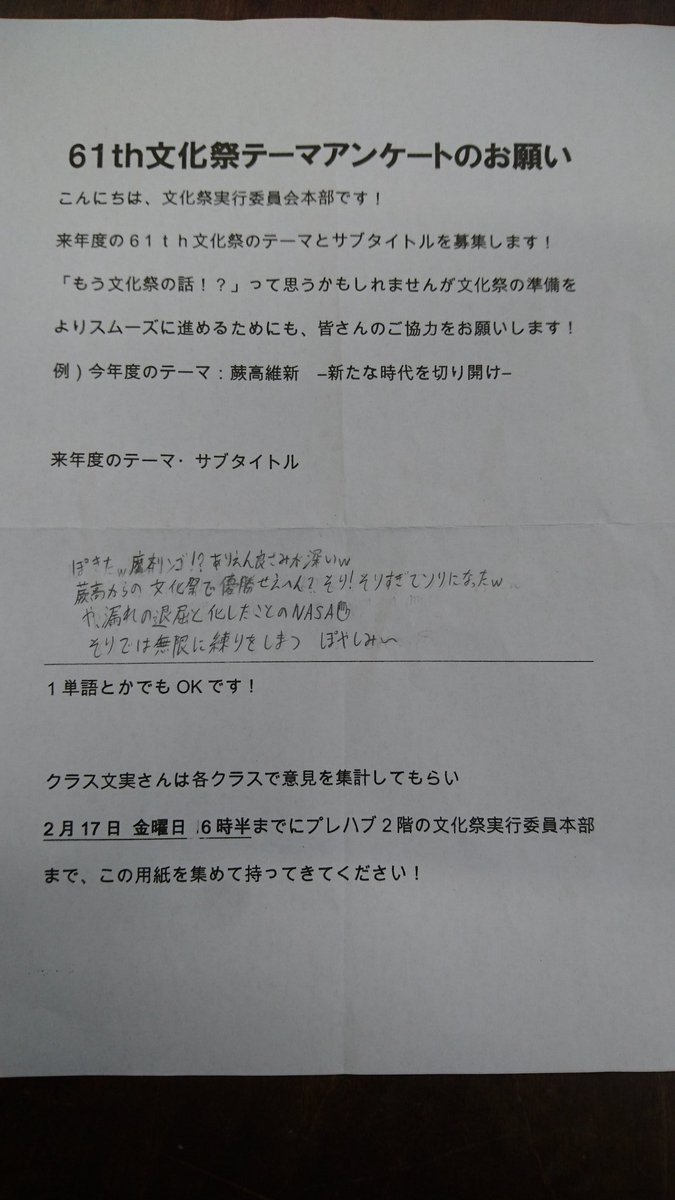 61th文化祭テーマアンケートのお願い
こんにちは、文化祭実行委員会本部です！
来年度の６１ｔｈ文化祭のテーマとサブタイトルを募集します！
「もう文化祭の話！？」って思うかもしれませんが文化祭の準備を
よりスムーズに進めるためにも、皆さんのご協力をお願いします！
例）今年度のテーマ：蕨高維新　–新たな時代を切り開け–
来年度のテーマ・サブタイトル
ぽきたｗ魔剤ンゴ!?ありえん良さみが深いｗ
蕨高からの文化祭で優勝せえへん？そり！そりすぎてソリになったｗ
や、漏れの退屈と化したことのNASA✋
そりでは無限に練りをしまつ　ぽやしみ〜
１単語とかでも OK です！
クラス文実さんは各クラスで意見を集計してもらい
2月17日 金曜日 16時半までにプレハブ２階の文化祭実行委員本部
まで、この用紙を集めて持ってきてください！